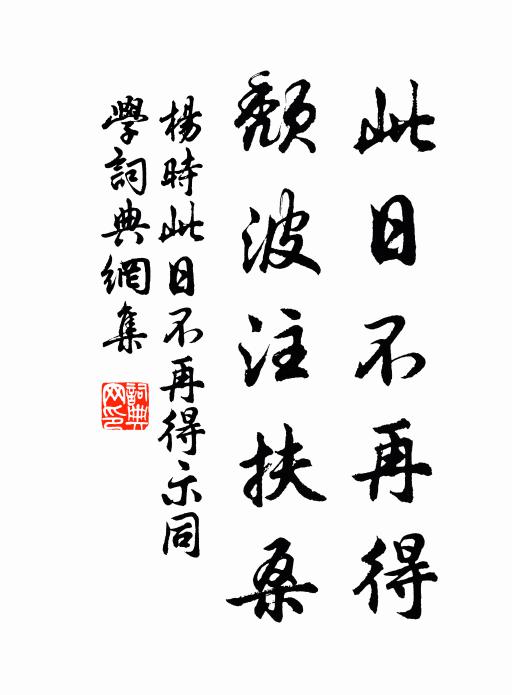 此日不再得
頹波注扶桑
楊時此日不再得示同
學詞典網集
詞典
网印